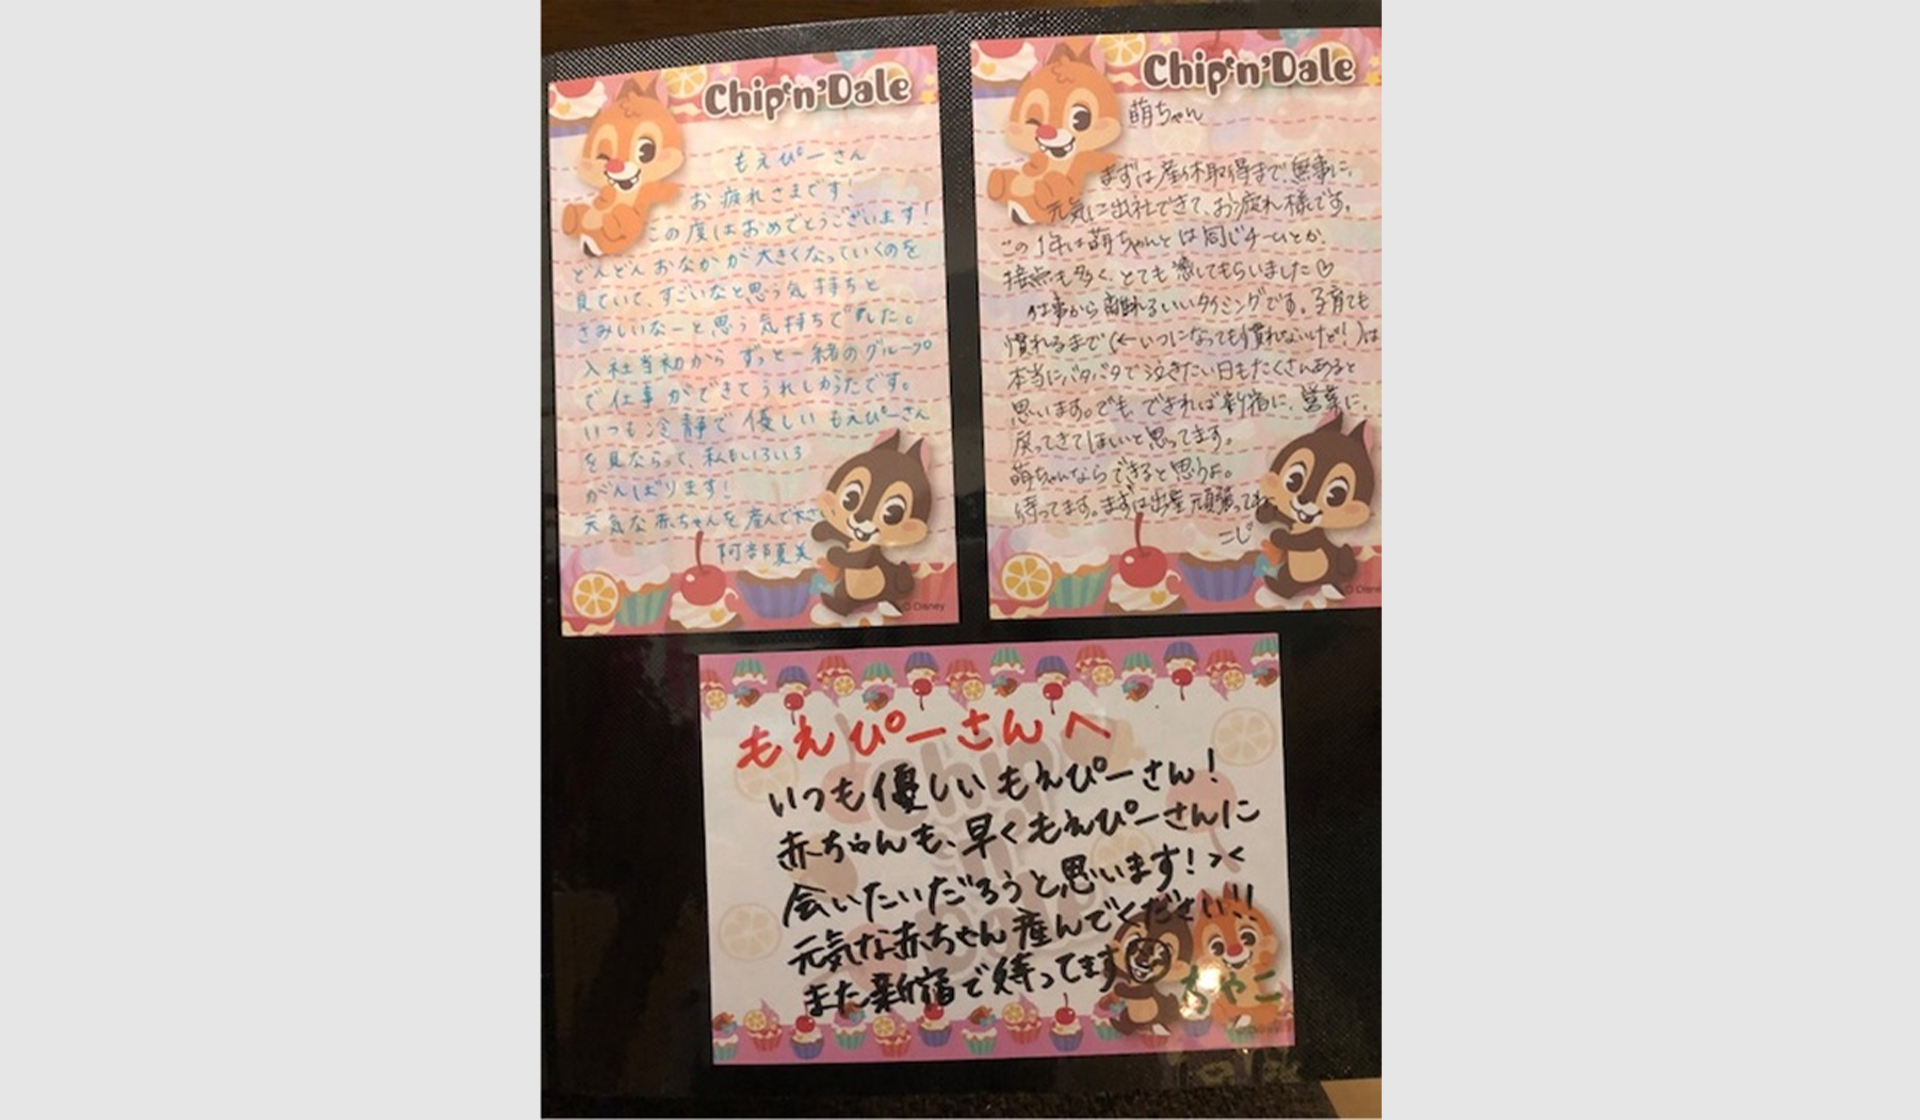 Chip'n'Dale
もえぴーさん
お疲れさまです!
この度はおめでとうございます!
どんどんおなかが大きくなっていくのを
見ていて、すごいなと思う気持ちと
さみしいなーと思う気持ちでした。
入社当初からずっと一緒のグループ
で仕事ができてうれしかったです。
いつも冷静で優しいもえぴーさん
を見ならって、私もいろいろ
がんばります!
元気な赤ちゃんを産んで下さ
阿部夏美
© Disney
Chip'n'Dale
萌ちゃん
まずは産休取得まで無事に、
元気に出社できて、お疲れ様です。
この1年は萌ちゃんとは同じチームとか、
接点も多く、とても癒してもらいました♡
仕事から離れるいいタイミングです。子育ても
慣れるまで(←いつになっても慣れないけど!)は
本当にバタバタで泣きたい日もたくさんあると
思います。でも、できれば新宿に、営業に、
戻ってきてほしいと思ってます。
萌ちゃんならできると思うよ。
待ってます。まずは出産頑張ってね。
こじ
© Disney
もえぴーさんへ
いつも優しいもえぴーさん!
赤ちゃんも、早くもえぴーさんに
会いたいだろうと思います!><
元気な赤ちゃん産んでください!!
また新宿で待ってます
ちゃこ